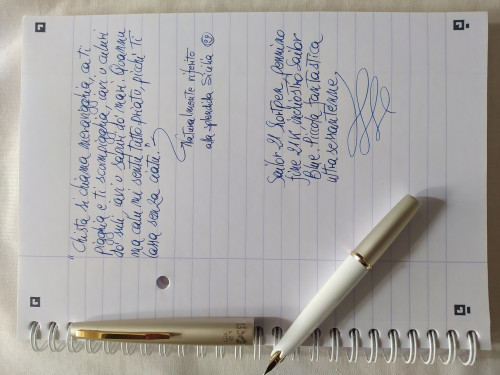 "Chista si chiama meravigghia, ca ti
pigghia e ti scumpigghia, avi u culuri
do' suli, avi u sapuri do' mari. Quannu
ma calu mi sentu tuttu priatu, picchì ti
lassa senza ciatu".
Naturalmente riferito
alla splendida Sicilia
Sailor 21 Sentoen, pennino
fine 21K, inchiostro Sailor
Blue. Piccola fantastica
ultrasessantenne.